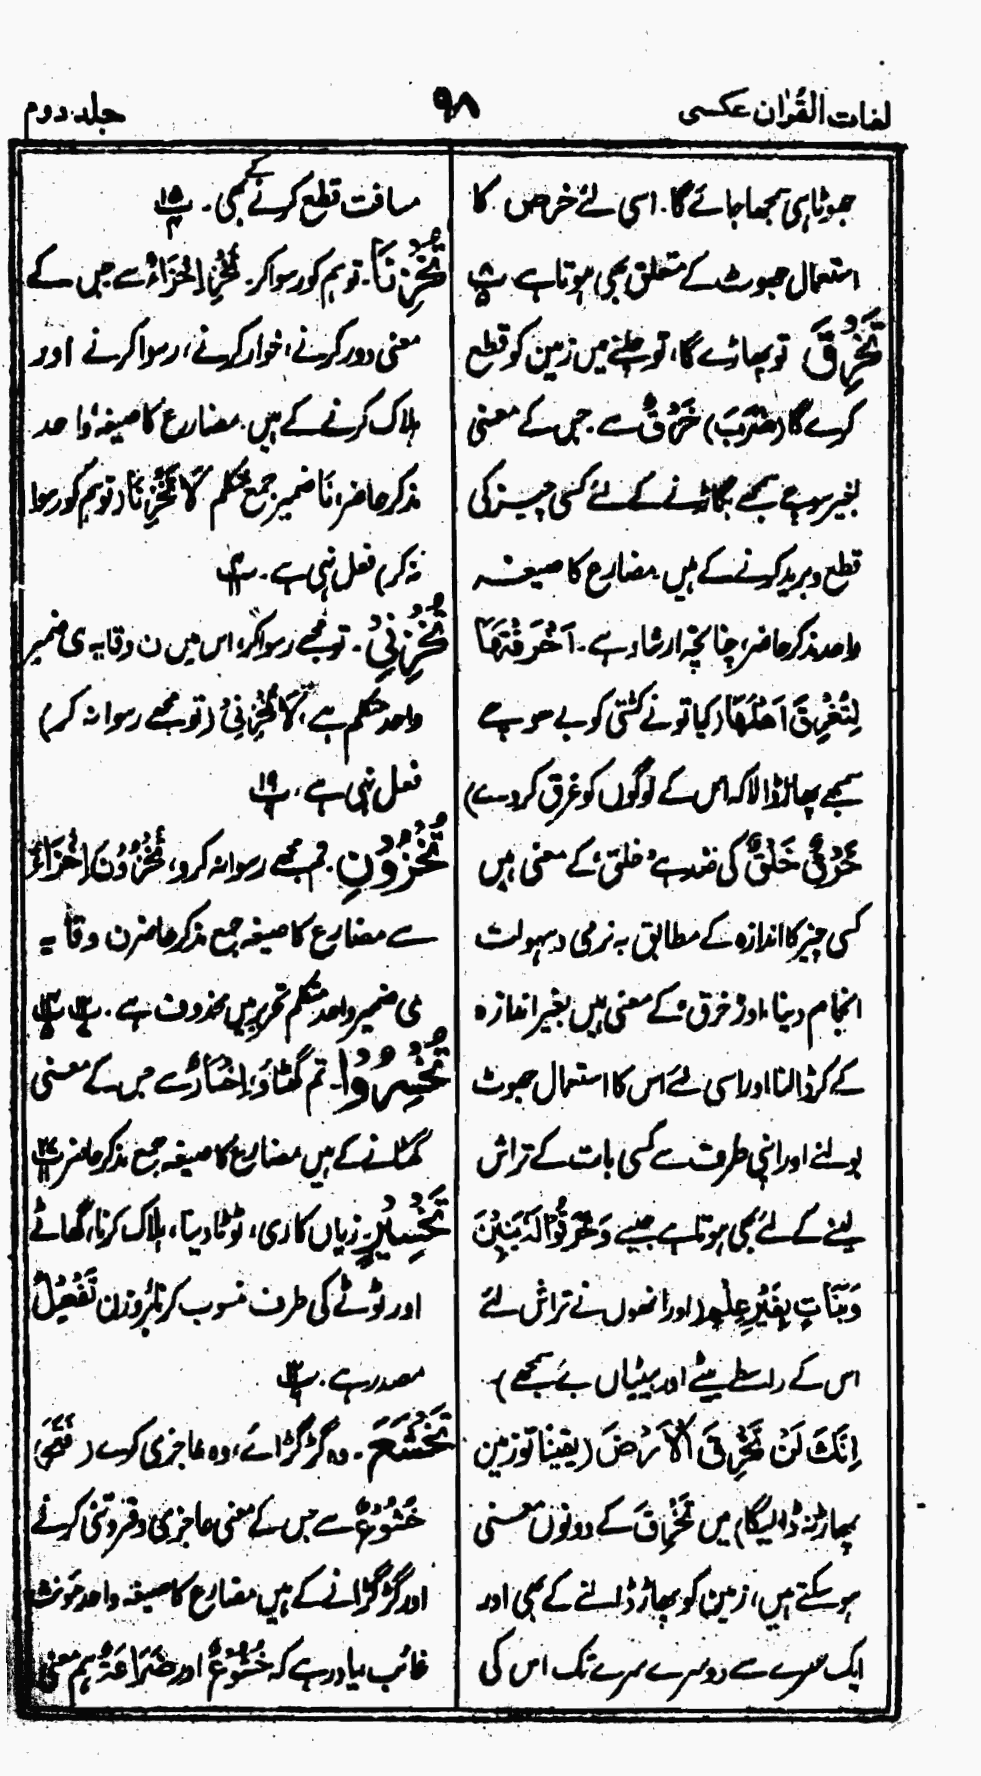 لغات القرآن عکسی
۹۸
جلد دوم
جھوٹا ہی سمجھا جائے گا۔ اسی لئے خرص کا
استعمال جھوٹ کے متعلق بھی ہوتا ہے پ۸
تَخْرِقَ تو پھاڑے گا، تو چلنے میں زمین کو قطع
کرے گا (ضَرَبَ) خَرْقٌ سے۔ جس کے معنی
بغیر سوچے سمجھے بگاڑنے کے لئے کسی چیز کی
قطع و برید کرنے کے ہیں مضارع کا صیغہ
واحد مذکر حاضر، چنانچہ ارشاد ہے۔ اَخَرَقْتَهَا
لِتُغْرِقَ اَهْلَهَا (کیا تو نے کشتی کو بے سوچے
سمجھے پھاڑ ڈالا کہ اس کے لوگوں کو غرق کردے)
خَرْقٌ خَلْقٌ کی ضد ہے خلق کے معنی ہیں
کسی چیز کا اندازہ کے مطابق بہ نرمی و سہولت
انجام دینا، اور خرق کے معنی ہیں بغیر اندازہ
کے کر ڈالنا اور اسی لئے اس کا استعمال جھوٹ
بولنے اور اپنی طرف سے کسی بات کے تراش
لینے کے لئے بھی ہوتا ہے جیسے وَخَرَقُوْا لَهٗ بَنِیْنَ
وَبَنَاتٍ بِغَیْرِ عِلْمٍ (اور انھوں نے تراش لئے
اس کے واسطے بیٹے اور بیٹیاں بے سمجھے)
اِنَّكَ لَنْ تَخْرِقَ الْاَرْضَ (یقینا تو زمین
پھاڑ نہ ڈالیگا) میں تَخْرِقَ کے دونوں معنی
ہو سکتے ہیں، زمین کو پھاڑ ڈالنے کے بھی اور
ایک سرے سے دوسرے سرے تک اس کی
مسافت قطع کرنے کے بھی۔ پ۱۵
تُخْزِنَا۔ تو ہم کو رسوا کر۔ تُخْزِ اِخْزَاءٌ سے جس کے
معنی دور کرنے، خوار کرنے، رسوا کرنے اور
ہلاک کرنے کے ہیں۔ مضارع کا صیغہ واحد
مذکر حاضر، نَا ضمیر جمع متکلم لَا تُخْزِنَا (تو ہم کو رسوا
نہ کر) فعل نہی ہے۔ پ۴
تُخْزِنِیْ۔ تو مجھے رسوا کر، اس میں ن وقایہ ی ضمیر
واحد متکلم ہے، لَا تُخْزِنِیْ (تو مجھے رسوا نہ کر)
فعل نہی ہے، پ۱۹
تُخْزُوْنِ۔ تم مجھے رسوا نہ کرو، تُخْزُوْنَ اِخْزَاءٌ
سے مضارع کا صیغہ جمع مذکر حاضر ن وقایہ
ی ضمیر واحد متکلم تحریر میں محذوف ہے۔ پ۱۲ پ۱۴
تُخْسِرُوْا۔ تم گھٹاؤ، اِخْسَارٌ سے جس کے معنی
گھٹانے کے ہیں مضارع کا صیغہ جمع مذکر حاضر پ۲۷
تَخْسِیْرٍ زیاں کاری، ٹوٹا دینا، ہلاک کرنا، گھاٹے
اور ٹوٹے کی طرف منسوب کرنا بروزن تَفْعِیْلٌ
مصدر ہے۔ پ۱۲
تَخْشَعَ۔ وہ گڑگڑائے، وہ عاجزی کرے (فَتَحَ)
خُشُوْعٌ سے جس کے معنی عاجزی و فروتنی کرنے
اور گڑگڑانے کے ہیں مضارع کا صیغہ واحد مؤنث
غائب یاد رہے کہ خُشُوْعٌ اور ضَرَاعَةٌ ہم معنی